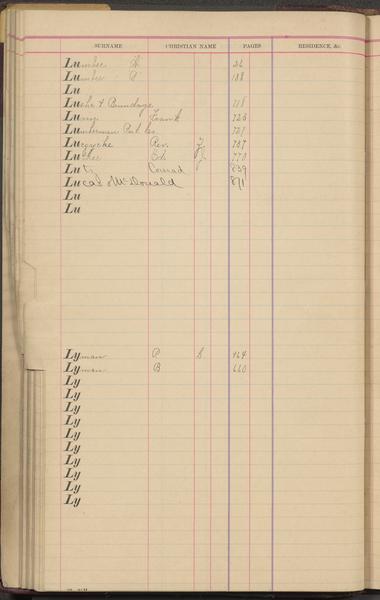 SURNAME CHRISTIAN NAME PAGES RESIDENCE, &c.
Lumbee
Lumbee 188
Lu
Luche & Bundage 718
Lu Frank 726
Lumberman Pub Co. 727
Lu Rev. J 737
Lu Ed. 770
Lutz Conrad 839
Lucas & McDonald 871
Lu
Lu
Lyman P S 464
Lyman B 660
Ly
Ly
Ly
Ly
Ly
Ly
Ly
Ly
Ly
Ly